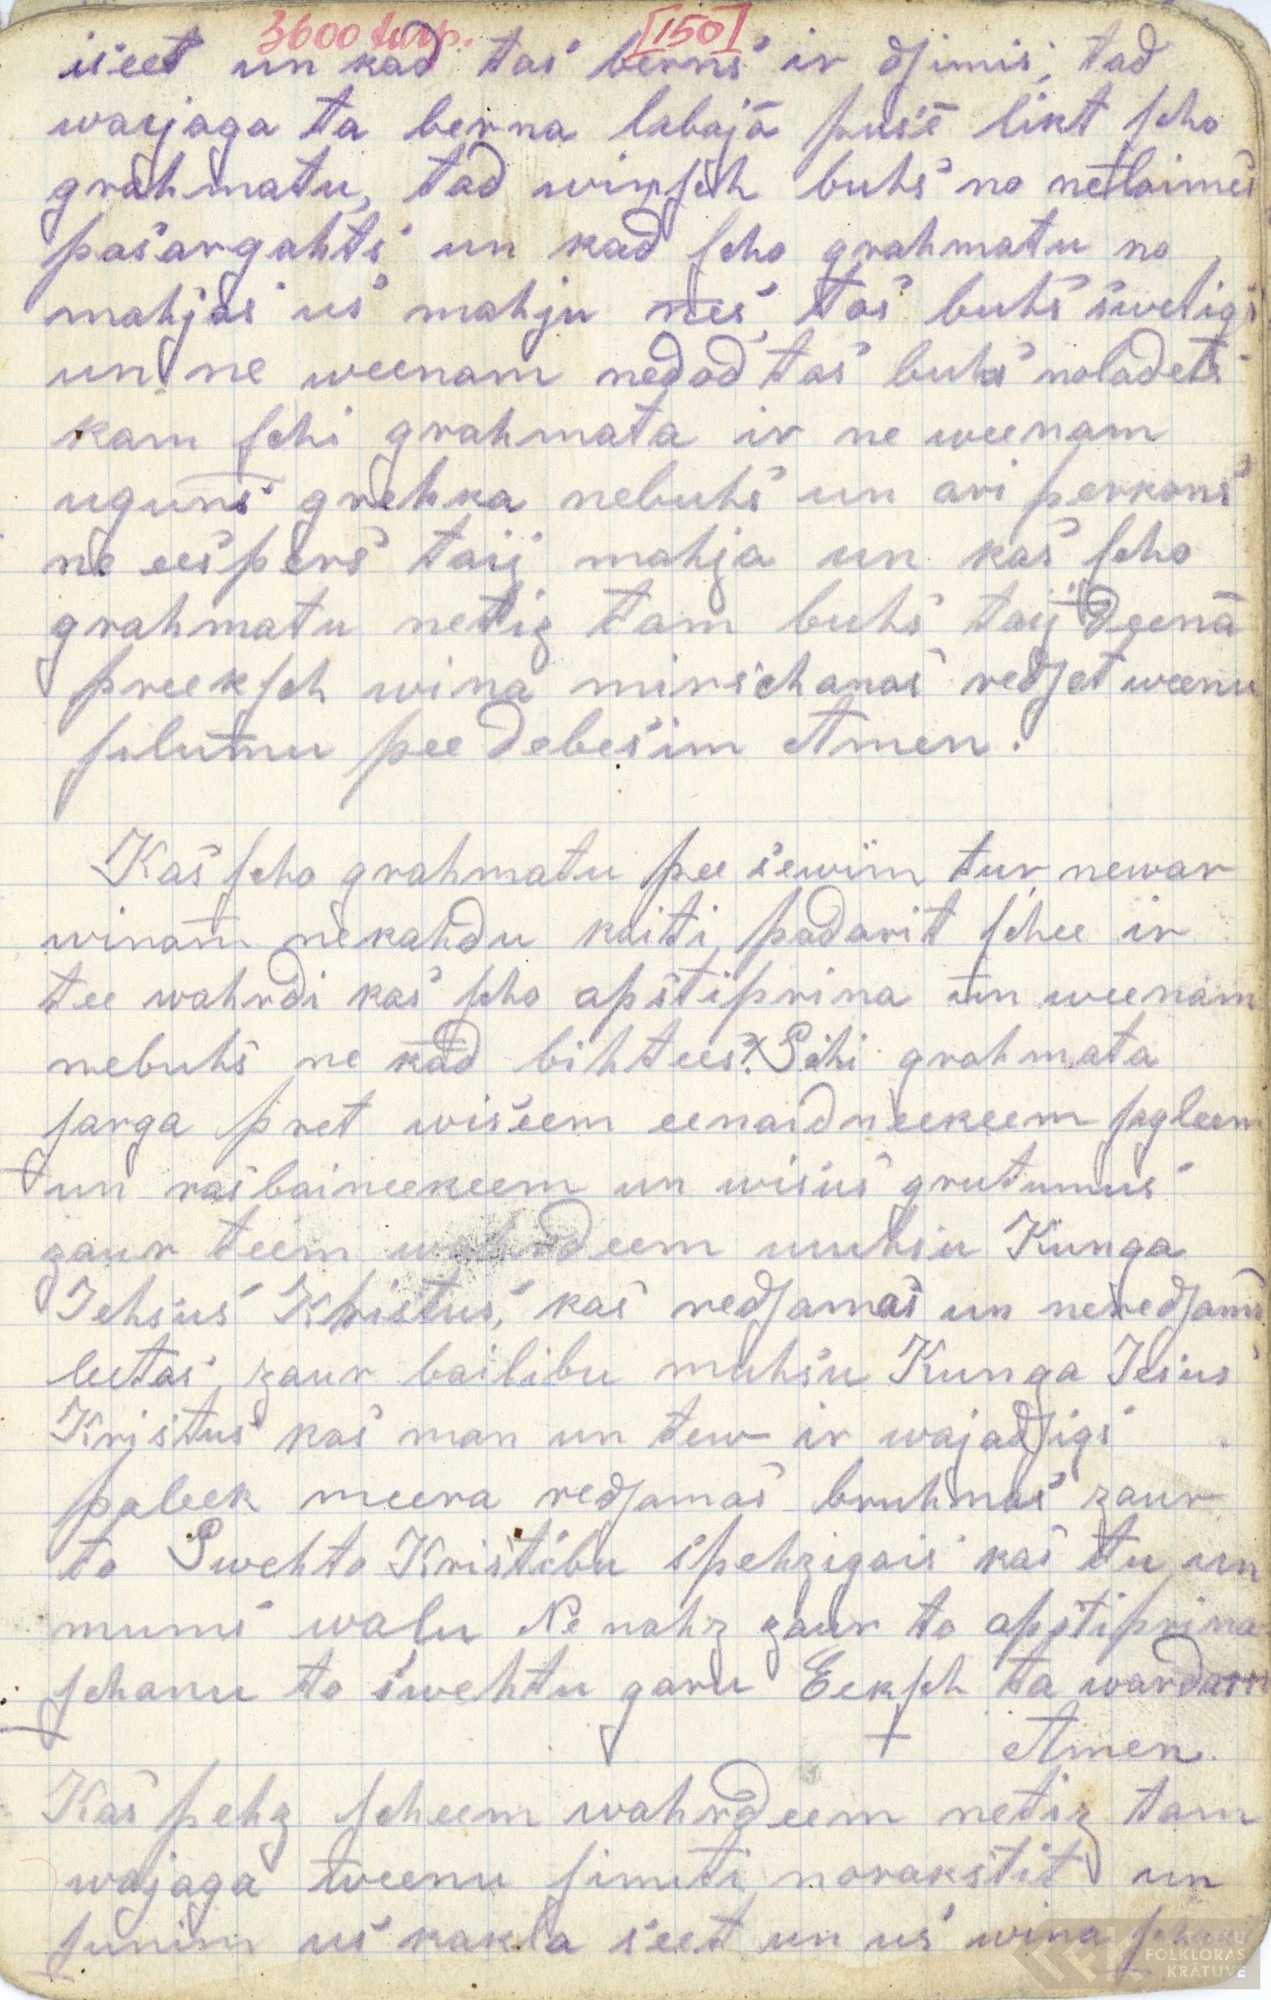 3600 turp. [150]
iseet un kad tas berns ir dſimis, tad
wajaga ta berna labajā pusē likt ſcho
grahmatu, tad winſch buhs no nelaimes
pasargahts un kad ſcho grahmatu no
mahjas us mahju nes, tas buhs swetigs
un ne weenam nedod tas buhs noladets
kam ſchi grahmata ir ne weenam
uguns grehka nebuhs un ari perkons
ne eespers taij mahja un kas ſcho
grahmatu netiz tam buhs taij deenā
preekſch wina mirschanas redſet weenu
ſilumu pee debesim Amen.
Kas ſcho grahmatu pee sewim tur newar
winam nekahdu kaiti padarit ſchee ir
tee wahrdi kas ſcho apstiprina un weenam
nebuhs ne kad bihtees. Schi grahmata
ſarga pret wiseem eenaidneekeem ſagleem
un rasbaineekeem un wisus grutumus
zaur teem wahrdeem muhsu Kunga
Jehsus Khristus, kas redſamas un neredſamas
leetas zaur bailibu muhsu Kunga Jesus
Kristus kas man un tew ir wajadſigs
paleek meera redſamas bruhmas zaur
to Swehto Kristibu spehzigais kas tu un
mums walu Ne nahz zaur to apstiprina
ſchanu to swehtu garu Eekſch ta wardam
+ Amen.
Kas pehz ſcheem wahrdeem netiz tam
wajaga weenu ſimiti norakstit un
ſunim us kakla seet un us wina
FOLKLORAS
KRĀTUVE